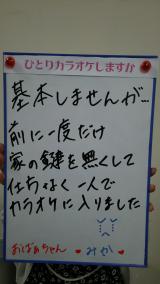 ひとりカラオケしますか
基本しませんが…
前に一度だけ
家の鍵を無くして
仕方なく一人で
カラオケに入りました
おばあちゃん
みか